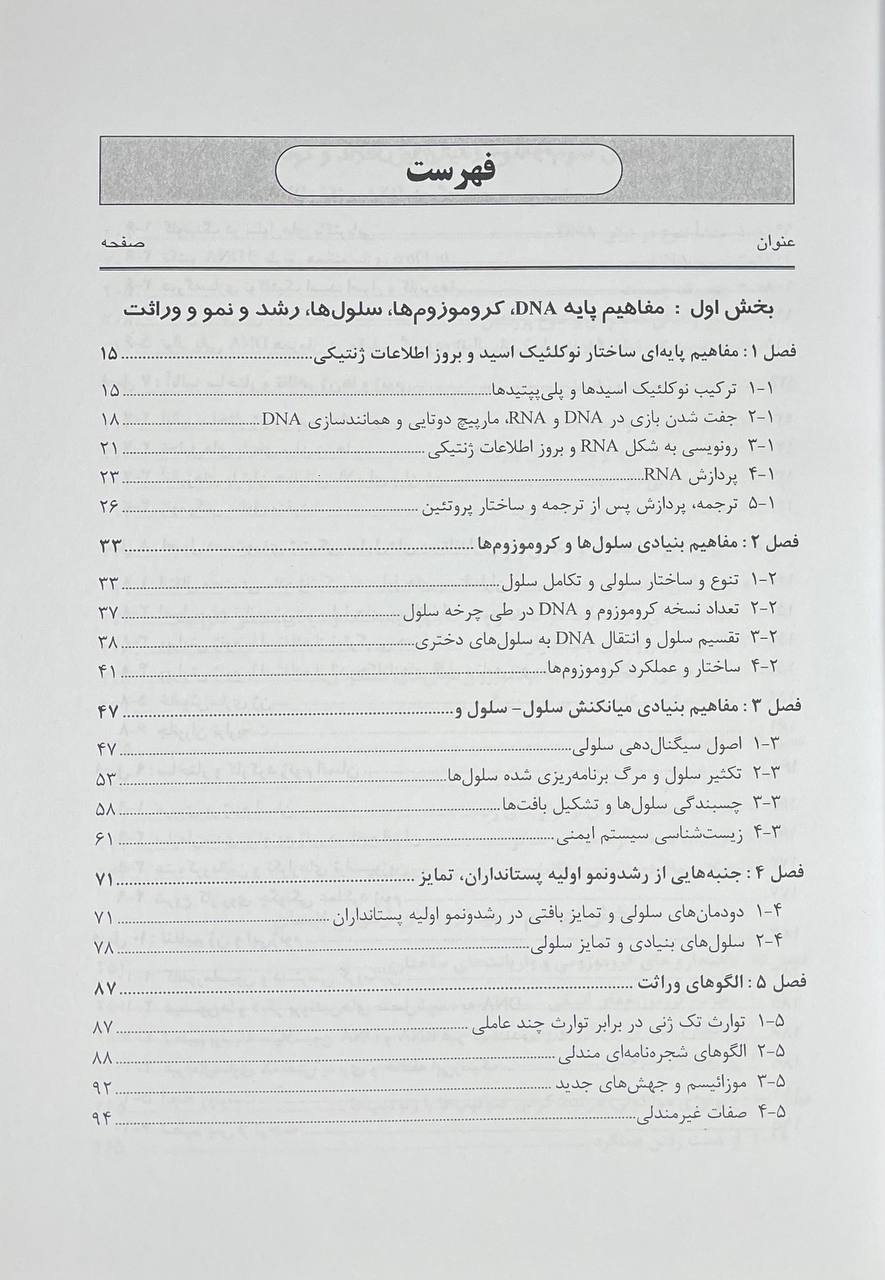 فهرست
عنوان صفحه
بخش اول : مفاهیم پایه DNA، کروموزوم‌ها، سلول‌ها، رشد و نمو و وراثت
فصل ۱: مفاهیم پایه‌ای ساختار نوکلئیک اسید و بروز اطلاعات ژنتیکی ۱۵
۱-۱ ترکیب نوکلئیک اسیدها و پلی‌پپتیدها ۱۵
۲-۱ جفت شدن بازی در DNA و RNA، مارپیچ دوتایی و همانندسازی DNA ۱۸
۳-۱ رونویسی به شکل RNA و بروز اطلاعات ژنتیکی ۲۱
۴-۱ پردازش RNA ۲۳
۵-۱ ترجمه، پردازش پس از ترجمه و ساختار پروتئین ۲۶
فصل ۲: مفاهیم بنیادی سلول‌ها و کروموزوم‌ها ۳۳
۱-۲ تنوع و ساختار سلولی و تکامل سلول ۳۳
۲-۲ تعداد نسخه کروموزوم و DNA در طی چرخه سلول ۳۷
۳-۲ تقسیم سلول و انتقال DNA به سلول‌های دختری ۳۸
۴-۲ ساختار و عملکرد کروموزوم‌ها ۴۱
فصل ۳: مفاهیم بنیادی میانکنش سلول- سلول و ۴۷
۱-۳ اصول سیگنال‌دهی سلولی ۴۷
۲-۳ تکثیر سلول و مرگ برنامه‌ریزی شده سلول‌ها ۵۳
۳-۳ چسبندگی سلول‌ها و تشکیل بافت‌ها ۵۸
۴-۳ زیست‌شناسی سیستم ایمنی ۶۱
فصل ۴: جنبه‌هایی از رشدونمو اولیه پستانداران، تمایز ۷۱
۱-۴ دودمان‌های سلولی و تمایز بافتی در رشدونمو اولیه پستانداران ۷۱
۲-۴ سلول‌های بنیادی و تمایز سلولی ۷۸
فصل ۵: الگوهای وراثت ۸۷
۱-۵ توارث تک ژنی در برابر توارث چند عاملی ۸۷
۲-۵ الگوهای شجره‌نامه‌ای مندلی ۸۸
۳-۵ موزائیسم و جهش‌های جدید ۹۲
۴-۵ صفات غیرمندلی ۹۴